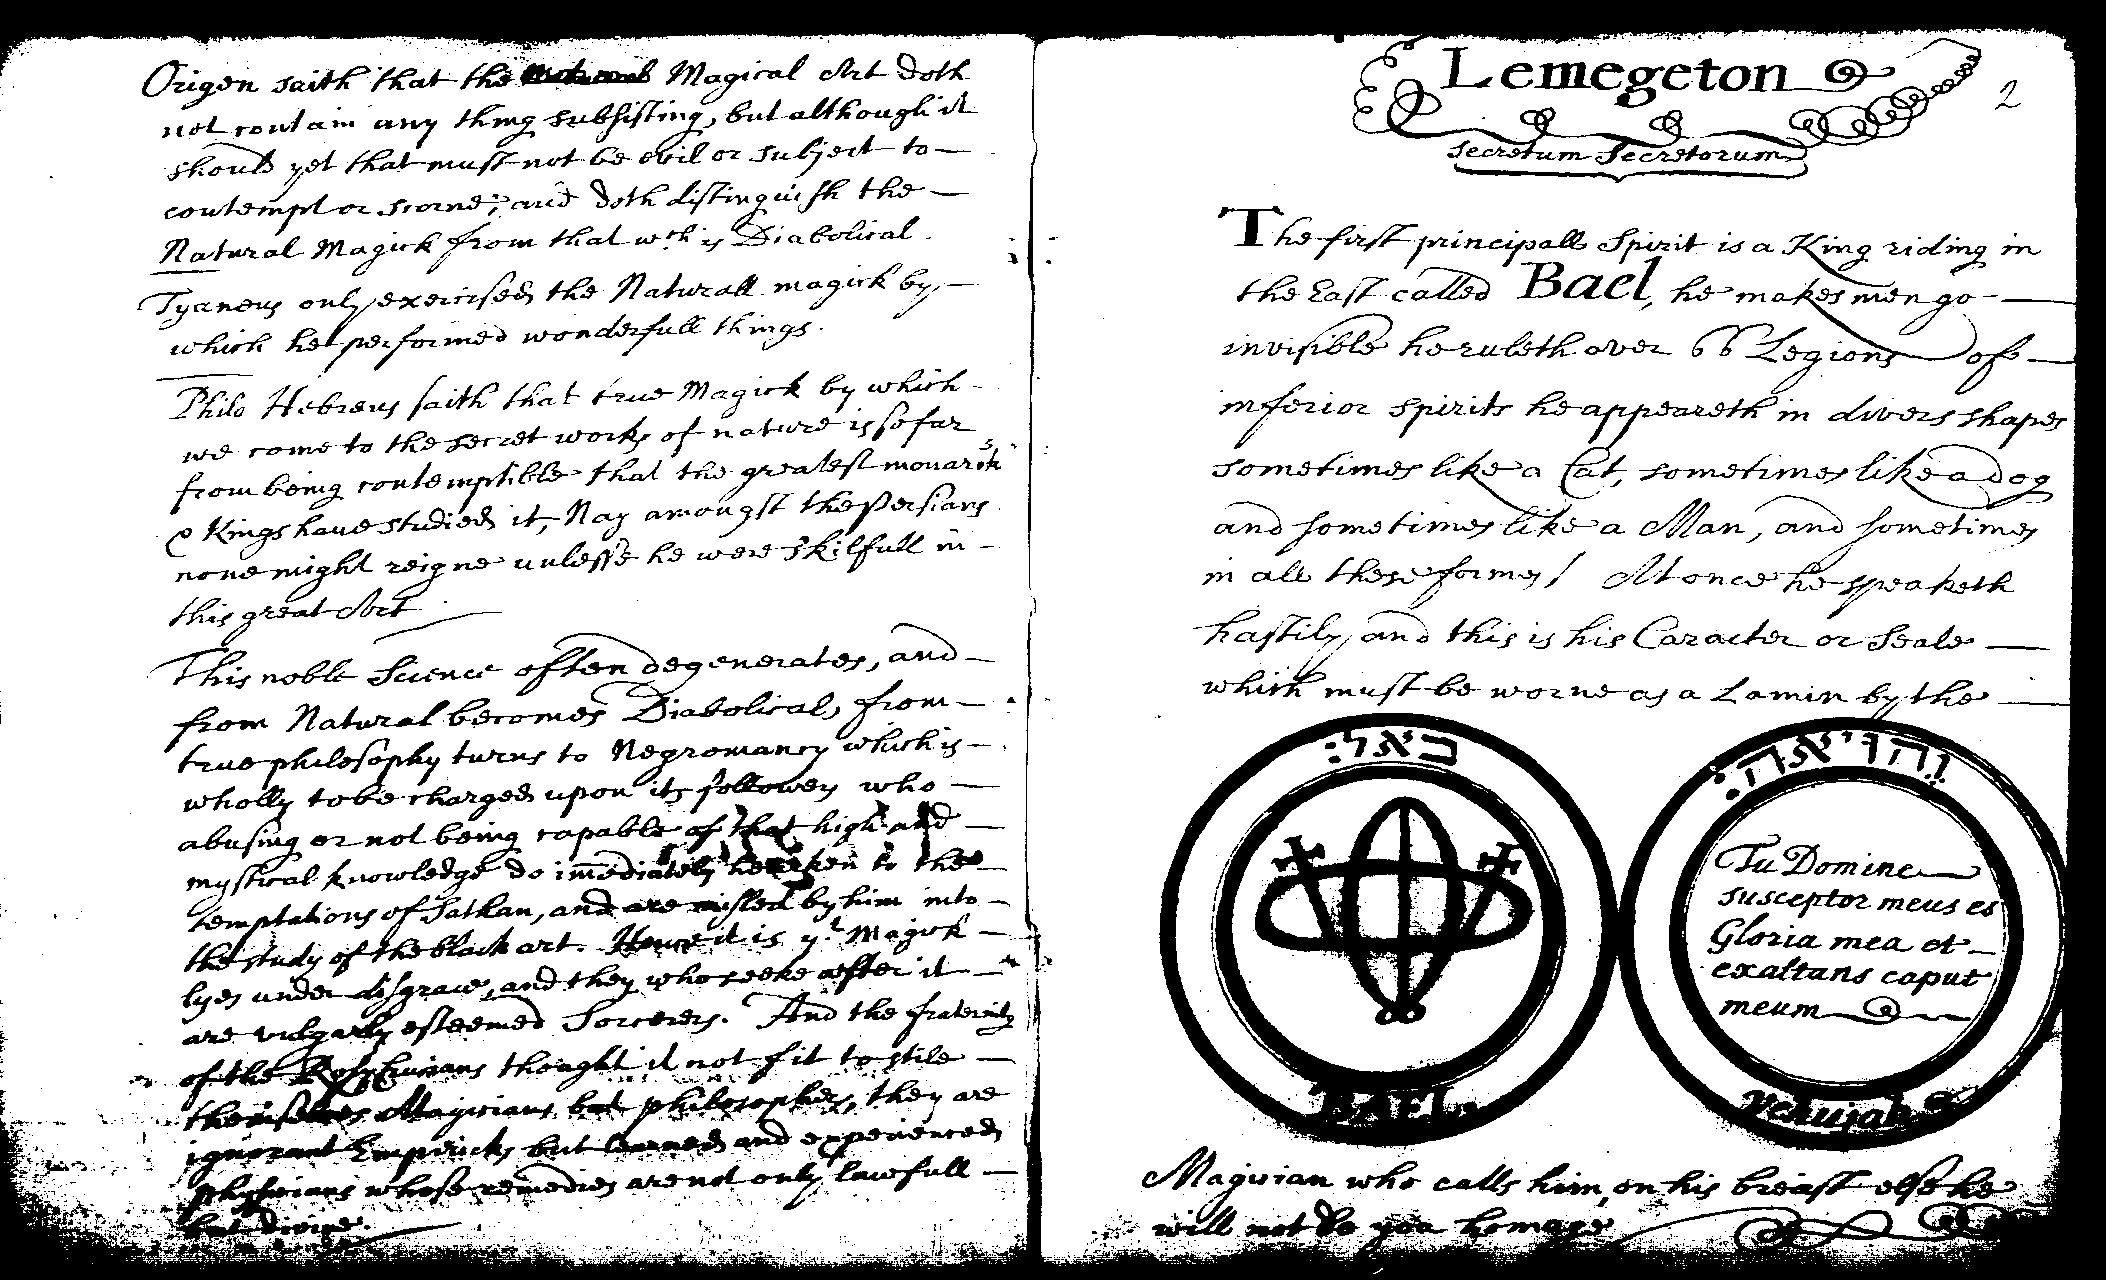 Origen saith that the Magical Art doth
not contain any thing subsisting, but although it
should yet that must not be evil or subject to
contempt or scorne; and doth distinguish the
Natural Magick from that wch is Diabolical.
Tyaneus only exercised the Naturall magick by
which he performed wonderfull things.
Philo Hebreus saith that true Magick by which
we come to the secret works of nature is so far
from being contemptible that the greatest monarchs
& Kings have studied it, Nay amongst the Persians
none might reigne unlesse he were skilfull in
this great Art
This noble Science often degenerates, and
from Natural becomes Diabolical, from
true philosophy turns to Negromancy which is
wholly to be charged upon its followers who
abusing or not being capable of that high and
mystical knowledge do imediately hearken to the
temptations of Sathan, and are misled by him into
the study of the black art. Hence it is yt Magick
lyes under disgrace, and they who seeke after it
are vulgarly esteemed Sorcerers. And the fraternity
of the thought it not fit to stile
themselves Magicians, but philosophers, they are
ignorant Empiricks but learned and experienced
physicians whose remedies are not only lawfull
but divine.
Lemegeton
2
secretum Secretorum
The first principall Spirit is a King riding in
the East called Bael, he makes men go
invisible he ruleth over 66 Legions of
inferior spirits he appeareth in divers shapes
sometimes like a Cat, sometimes like a dog
and sometimes like a Man, and sometimes
in all these formes / At once he speaketh
hastily, and this is his Caracter or Seale
which must be worne as a Lamin by the
באל:
והויאה:
Tu Domine
susceptor meus es
Gloria mea et
exaltans caput
meum
BAEL.
Vehujah
Magician who calls him, on his breast else he
will not do you homage